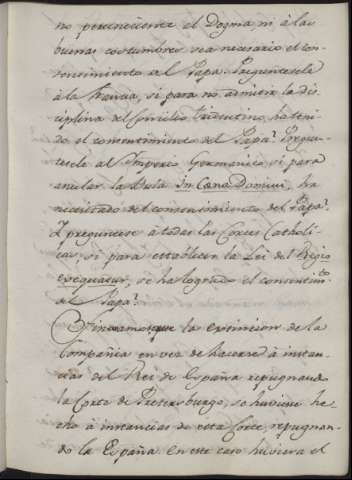 no perteneciente al Dogma, ni à las
buenas costumbres sea necesario el con-
sentimiento del Papa. Preguntesele
à la Francia, si para no admitir la dis-
ciplina del Concilio Tridentino ha teni-
do el consentimiento del Papa? Pregun-
tesele al Imperio Germanico si para
anular la Bula In Cœna Domini, ha
necesitado del consentimiento del Papa?
Y preguntese à todas las Cortes Catholi-
cas, si para establecer la Lei del Regio
exequatur, se ha logrado el consentim.to
del Papa?
Finxamos que la extincion de la
Compañia en vez de hacerse à instan-
cias del Rei de España repugnando
la Corte de Petersburgo, se huviese he-
cho à instancias de esta Corte, repugnan-
do la España. En este caso huviera el